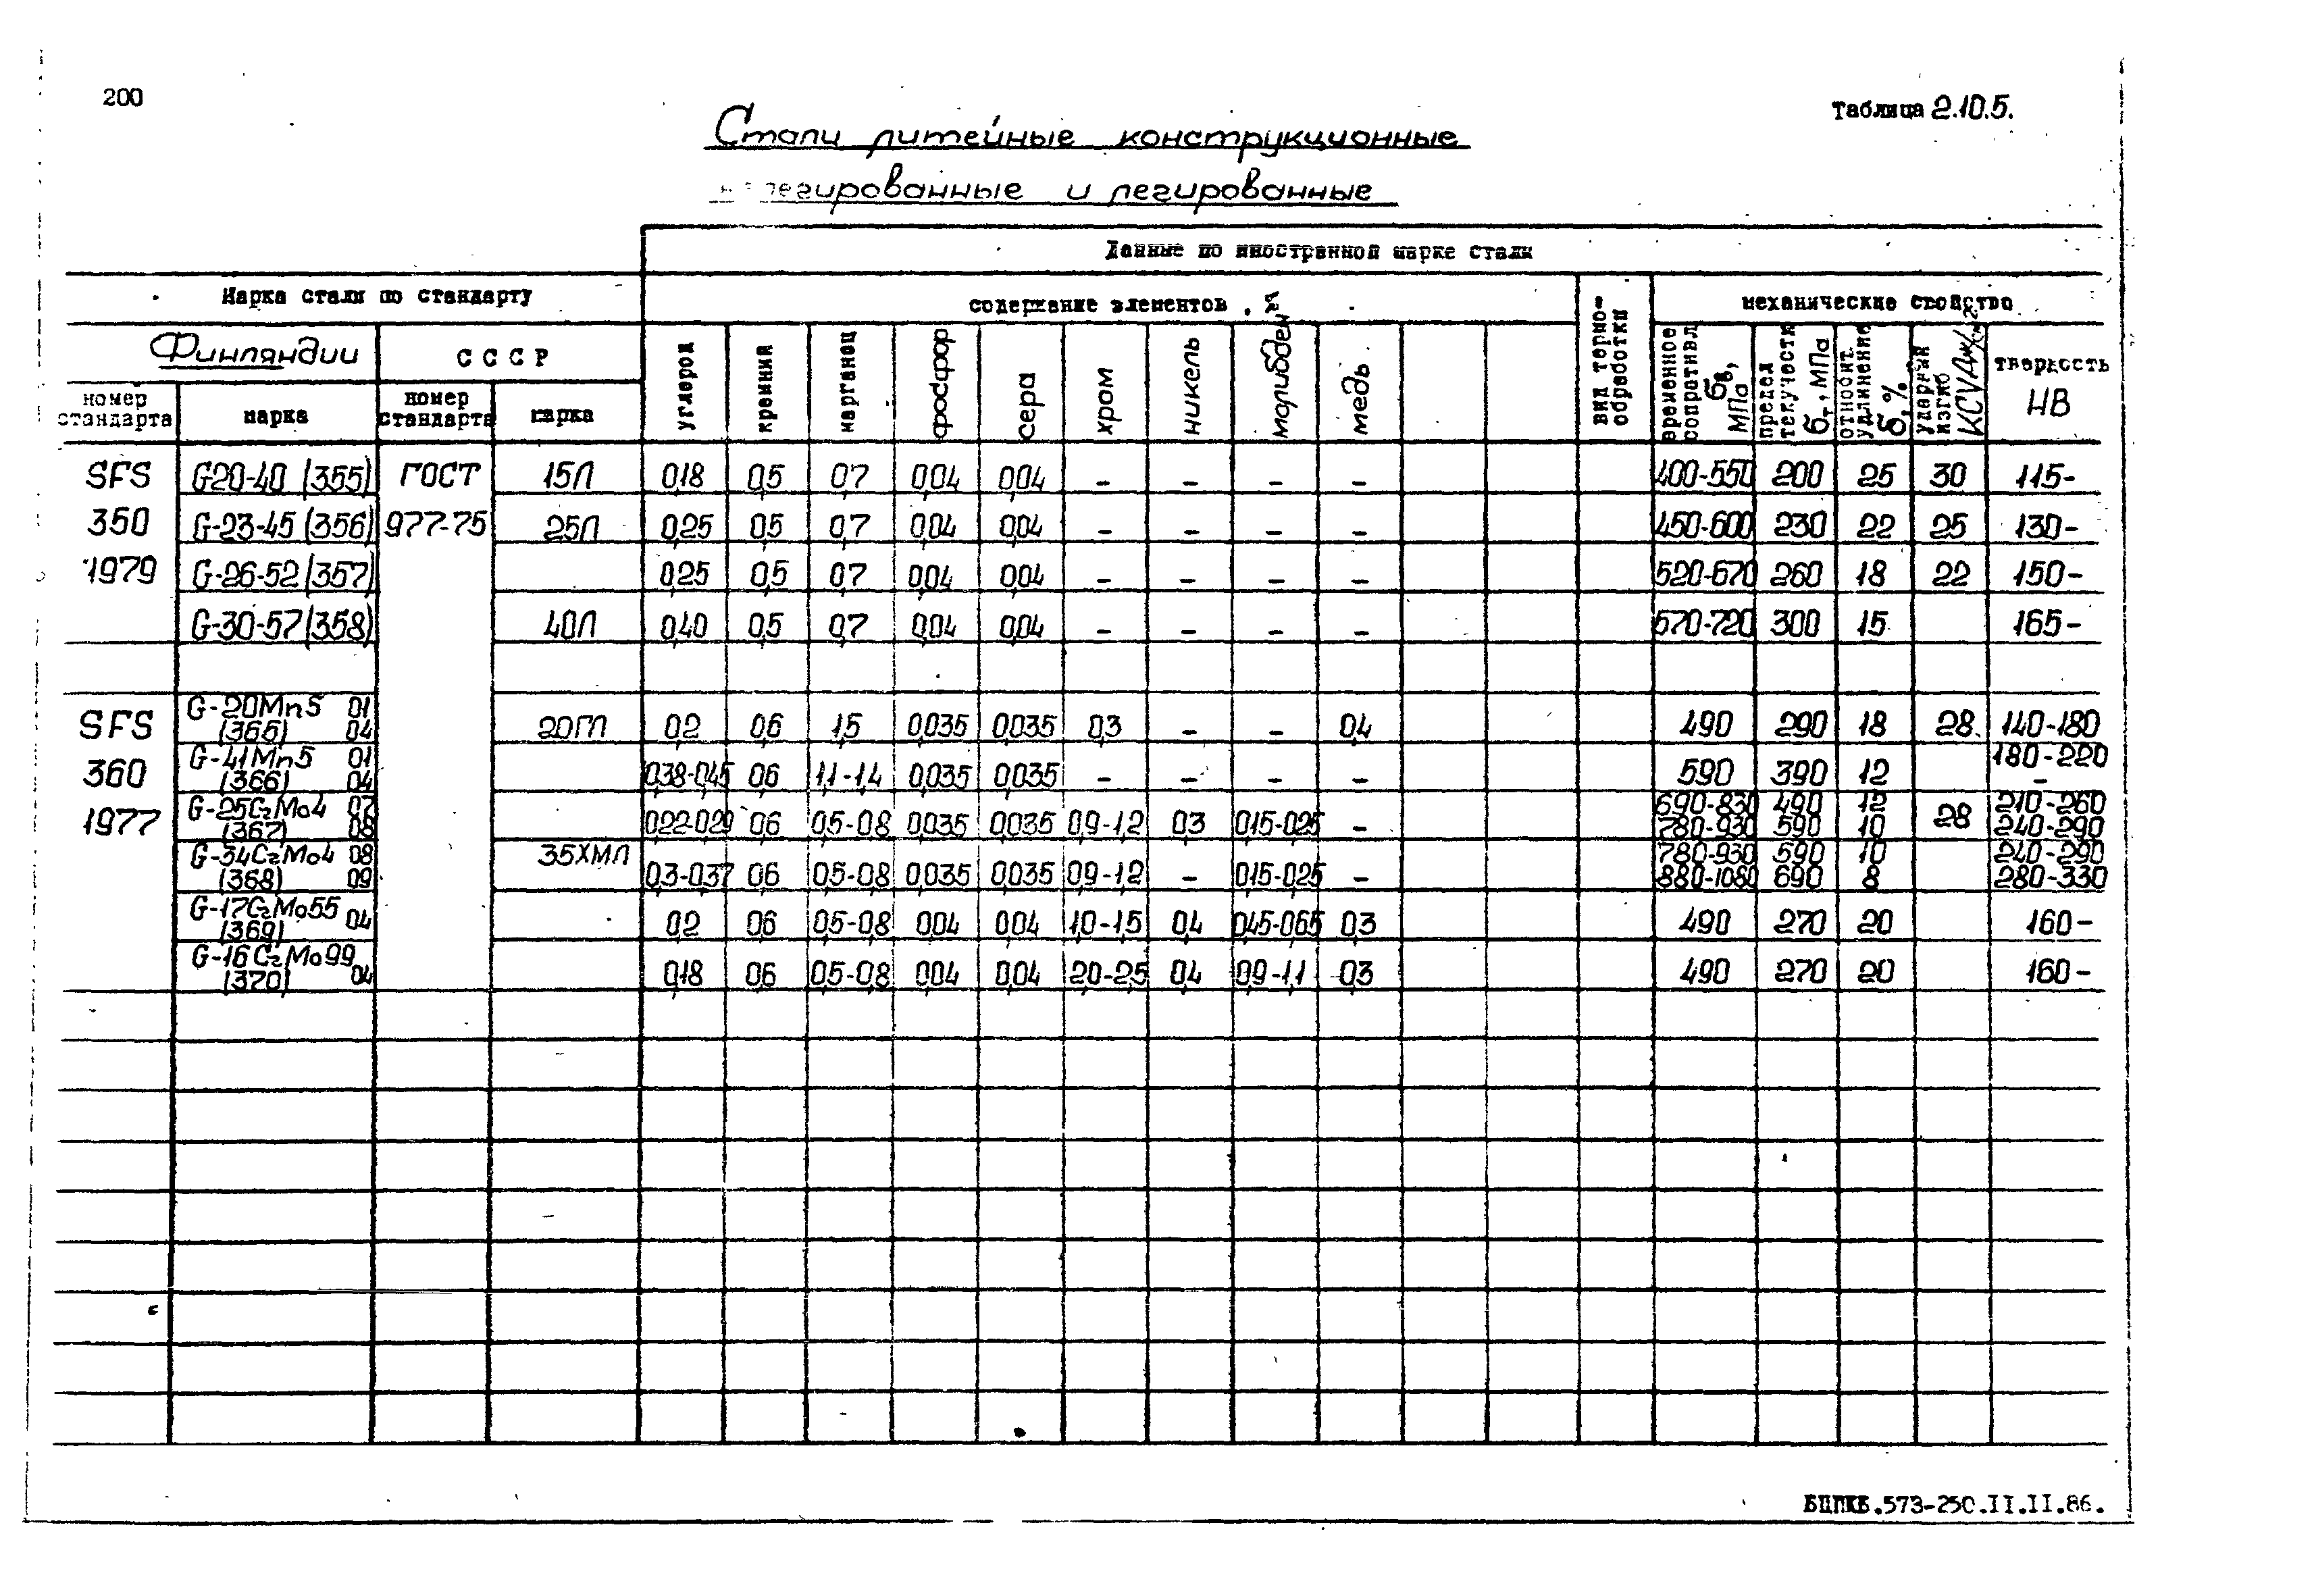 200
Таблица 2.10.5.
Стали литейные конструкционные
нелегированные и легированные
Данные по иностранной марке стали
Марка стали по стандарту
содержание элементов, %
вид термо-
обработки
механические свойства
Финляндии
СССР
номер
стандарта
марка
номер
стандарта
марка
углерод
кремний
марганец
фосфор
сера
хром
никель
молибден
медь
временное
сопротивл.
σв,
МПа
предел
текучести
σт, МПа
относит.
удлинение
δ, %
ударная
вязкость
KCU Дж/см²
твердость
HB
SFS G20-40 (355) ГОСТ 15Л 0,18 0,5 0,7 0,04 0,04 – – – – 400-550 200 25 30 115-
350 G-23-45 (356) 977-75 25Л 0,25 0,5 0,7 0,04 0,04 – – – – 450-600 230 22 25 130-
1979 G-26-52 (357) 0,25 0,5 0,7 0,04 0,04 – – – – 520-670 260 18 22 150-
G-30-57 (358) 40Л 0,40 0,5 0,7 0,04 0,04 – – – – 570-720 300 15 165-
G-20Mn5 01
SFS (365) 04 20ГЛ 0,2 0,6 1,5 0,035 0,035 0,3 – – 0,4 490 290 18 28 140-180
G-41Mn5 01 180-220
360 (366) 04 0,38-0,45 0,6 1,1-1,4 0,035 0,035 – – – – 590 390 12 –
G-25CrMo4 07 690-830 490 12 210-260
1977 (367) 08 0,22-0,29 0,6 0,5-0,8 0,035 0,035 0,9-1,2 0,3 0,15-0,25 – 780-930 590 10 28 240-290
G-34CrMo4 08 35ХМЛ 780-930 590 10 240-290
(368) 09 0,3-0,37 0,6 0,5-0,8 0,035 0,035 0,9-1,2 – 0,15-0,25 – 880-1080 690 8 280-330
G-17CrMo55 04
(369) 0,2 0,6 0,5-0,8 0,04 0,04 1,0-1,5 0,4 0,45-0,65 0,3 490 270 20 160-
G-16CrMo99
(370) 04 0,18 0,6 0,5-0,8 0,04 0,04 2,0-2,5 0,4 0,9-1,1 0,3 490 270 20 160-
БЦПКБ.573-250.II.II.86.